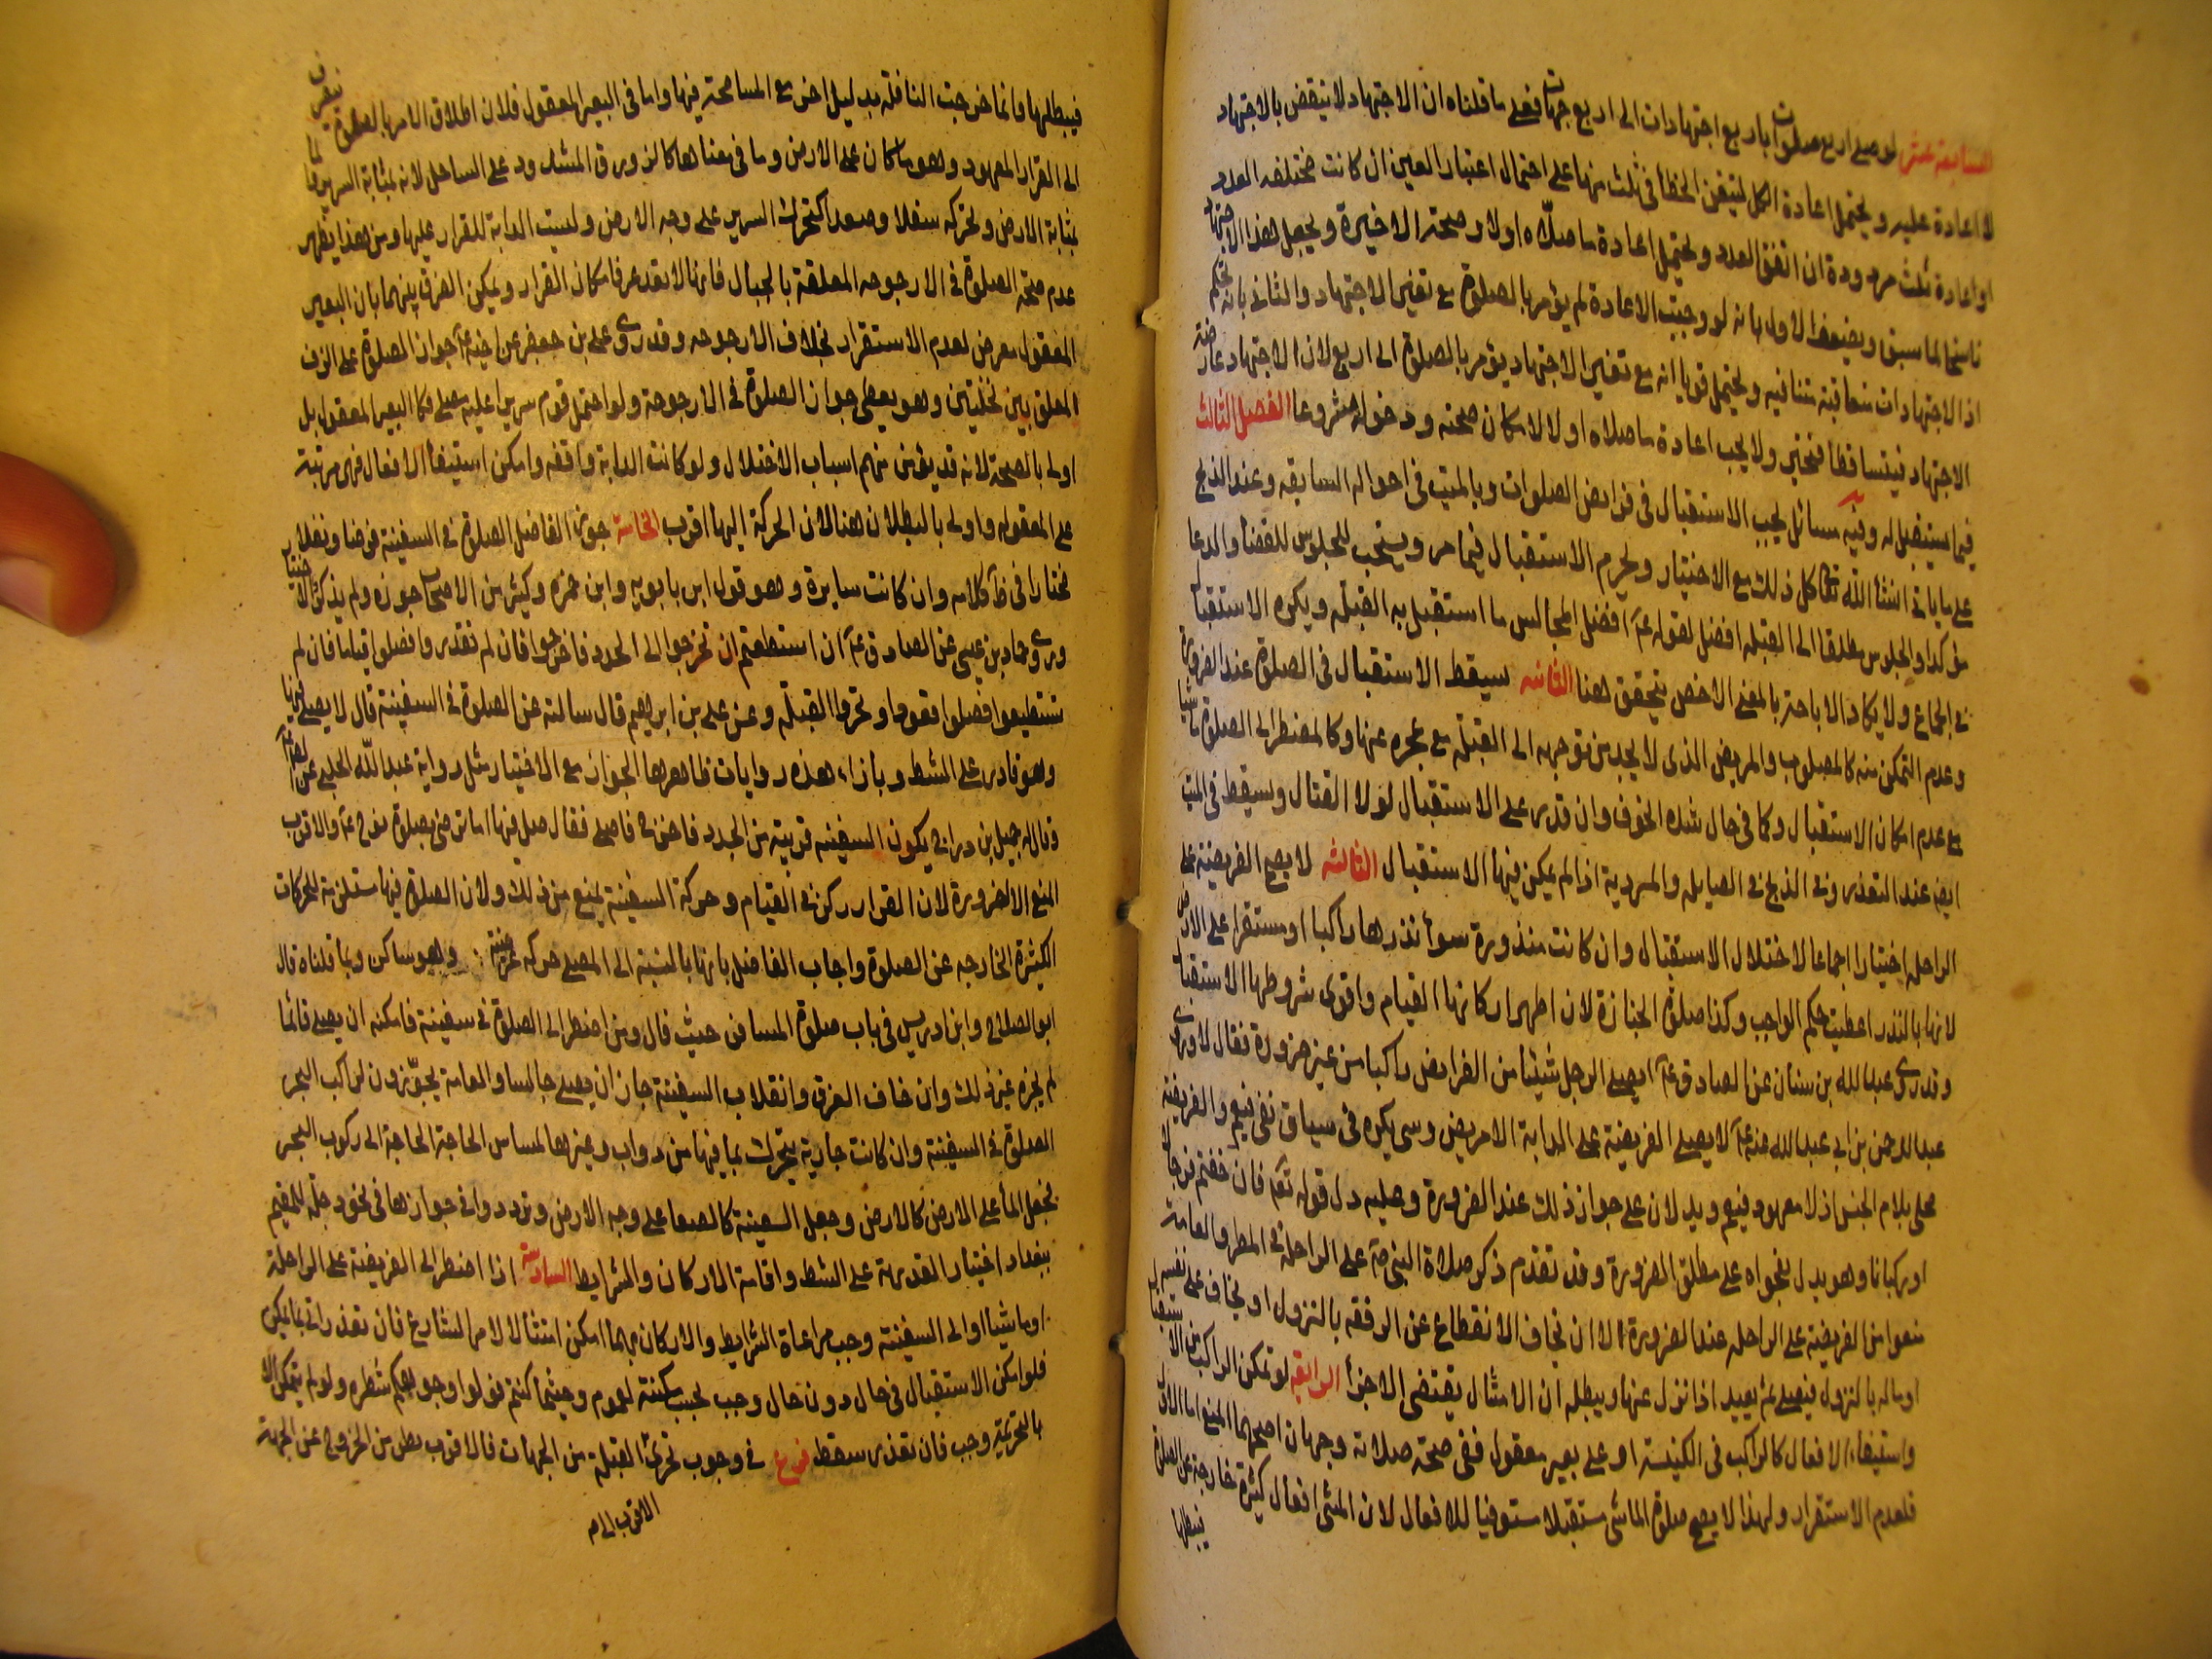 السابعة عشر لو صلى اربع صلوات باربع اجتهادات الى اربع جهات فعلى ما قلناه ان الاجتهاد لا ينقض بالاجتهاد
لا اعادة عليه ويحتمل اعادة الكل لتيقن الخطأ في ثلث منها على احتمال اعتبار العين ان كانت مختلفه العدد
او اعادة ثلث مرددة ان اتفق العدد ويحتمل اعادة ما صلاه اولا وصحة الاخيرة ويجعل هذا الاجتهاد
ناسخا لما سبق ويضعف الاول بانه لو وجبت الاعادة لم يؤمر بالصلوة مع تغير الاجتهاد والثاني بانه تحكم
اذ الاجتهادات متعاقبة متنافيه ويحتمل قويا انه مع تغير الاجتهاد يؤمر بالصلوة الى اربع لان الاجتهاد عارضه
الاجتهاد فيتساقطا فيتحير ولا يجب اعادة ما صلاه اولا لامكان صحته ودخوله مشروعا الفصل الثالث
فيما يستقبل له وفيه مسائل يجب الاستقبال في فرايض الصلوات وبالميت في احواله السابقه وعند الذبح
على ما ياتي انشأ الله تعالى كل ذلك مع الاختيار ويحرم الاستقبال فيما مر ويستحب للجلوس للقضأ والدعا
مؤكدا والجلوس مطلقا الى القبله افضل لقوله عم افضل المجالس ما استقبل به القبله ويكره الاستقبال
في الجماع ولا يكاد الاباحة بالمعنى الاخص يتحقق هنا الثانيه يسقط الاستقبال في الصلوة عند الضرورة
وعدم التمكن منه كالمصلوب والمريض الذي لا يجد من توجهه الى القبلة مع عجزه عنها وكالمضطر الى الصلوة ماشيا
مع عدم امكان الاستقبال وكما في حال شده الخوف وان قدر على الاستقبال لولا القتال ويسقط في الميت
ايضا عند التعذر وفي الذبح في الصايل والمردية اذا لم يمكن فيها الاستقبال الثالثه لا يصح الفريضة على
الراحله اختيارا اجماعا لاختلال الاستقبال وان كانت منذورة سوأ نذرها راكبا او مستقرا على الارض
لانها بالنذر اعطيت حكم الواجب وكذا صلوة الجنازة لان اظهر اركانها القيام واقوى شروطها الاستقبال
وقد روى عبد الله بن سنان عن الصادق عم ايصلى الرجل شيئا من الفرايض راكبا من غير ضرورة فقال لا وروى
عبد الرحمن بن ابي عبد الله عنه عم لا يصلى الفريضة على الدابة الا مريض وسى نكره في سياق نفى فيعم والفريضة
محلى بلام الجنس اذ لا معهود فيعم ويدلان على جواز ذلك عند الضرورة وعليه دل قوله تعم فان خفتم فرجالا
او ركبانا وهو يدل بفحواه على مطلق الضرورة وقد تقدم ذكر صلاة النبي ص على الراحلة في المطر والعامة
منعوا من الفريضة على الراحله عند الضرورة الا ان يخاف الانقطاع عن الرفقه بالنزول او يخاف على نفسه
او ماله بالنزول فيصلى ثم يعيد اذا نزل عنها ويبطله ان الامتثال يقتضى الاجزأ الرابعة لو تمكن الراكب من الاستقبال
واستيفاء الافعال كالراكب في الكنيسة او على بعير معقول ففى صحة صلاته وجهان اصحهما المنع اما الاول
فلعدم الاستقرار ولهذا لا يصح صلوة الماشى مستقبلا مستوفيا للافعال لان المشى افعال كثيرة خارجة عن الصلوة
فيبطلها
فيبطلها وانما خرجت النافلة بدليل اخر مع المسامحة فيها واما في البعير المعقول فلان اطلاق الامر بالصلوة ينصرف
الى القرار المعهود وهو ما كان على الارض وما في معناها كالزورق المشدود على الساحل لانه بمثابة السرير والما
بمثابة الارض وتحركه سفلا وصعدا كتحرك السرير على وجه الارض وليست الدابة للقرار عليها ومن هذا يظهر
عدم صحة الصلوة في الارجوحه المعلقة بالحبال فانها لا تعد عرفا مكان القرار ويمكن الفرق بينهما بان البعير
المعقول معرض لعدم الاستقرار بخلاف الارجوحه وقد روى على بن جعفر عن اخيه عم جواز الصلوة على الرف
المعلق بين نخلتين وهو يعطى جواز الصلوة في الارجوحة ولو احتمل قوم سريرا عليه مصلى فكالبعير المعقول بل
اولى بالصحة لانه قد يؤمن منهم اسباب الاختلال ولو كانت الدابة واقفه وامكن استيفأ الافعال فهى مرتبة
على المعقوله واولى بالبطلان هنا لان الحركة اليها اقرب الخامسة جوز الفاضل الصلوة في السفينة فرضا ونفلا
مختارا في ظ كلامه وان كانت سايرة وهو قول ابن بابويه وابن حمزه وكثير من الاصحاب جوزه ولم يذكر الاختيار
وروى حماد بن عيسى عن الصادق عم ان استطعتم ان تخرجوا الى الجدد فاخرجوا فان لم تقدروا فصلوا قياما فان لم
تستطيعوا فصلوا قعودا وتحروا القبلة وعن على بن ابرهيم قال سالته عن الصلوة في السفينة قال لا يصلى فيها
وهو قادر على الشط وبازاء هذه روايات ظاهرها الجواز مع الاختيار مثل رواية عبد الله الحلبى عن الصادق عم
وقال له جميل بن دراج يكون السفينه قريبة من الجدد فاخرج فاصلى فقال صل فيها اما ترضى بصلوة نوح عم والاقرب
المنع الا لضرورة لان القرار ركن في القيام وحركة السفينة يمنع من ذلك ولان الصلوة فيها مستلزمة للحركات
الكثيرة الخارجه عن الصلوة واجاب الفاضل بانها بالنسبة الى المصلى حركه عرضية وهو ساكن وبما قلناه قال
ابو الصلاح وابن ادريس في باب صلوة المسافر حيث قال ومن اضطر الى الصلوة في سفينة فامكنه ان يصلى قائما
لم يجزه غير ذلك وان خاف الغرق وانقلاب السفينة جاز ان يصلى جالسا والعامة يجوزون لراكب البحر
الصلوة في السفينة وان كانت جارية يتحرك بما فيها من دواب وغيرها لمساس الحاجة الحاجة الى ركوب البحر
فجعل المأ على الارض كالارض وجعل السفينة كالصفا على وجه الارض وترددوا في جوازها في نحو دجلة للمقيم
ببغداد اختيار القدرته على الشط واقامة الاركان والشرايط السادسة اذا اضطر الى الفريضة على الراحلة
او ماشيا او الى السفينة وجب مراعاة الشرايط والاركان مهما امكن امتثالا لامر الشارع فان تعذر اتى بما يمكن
فلو امكن الاستقبال في حال دون حال وجب بحسب مكنته لعموم وحيثما كنتم فولوا وجوهكم شطره ولو لم يتمكن الا
بالتحريمة وجب فان تعذر سقط فرع في وجوب تحرى القبلة من الجهات فالاقرب بطل من الخروج عن الجهة
الاقرب الى